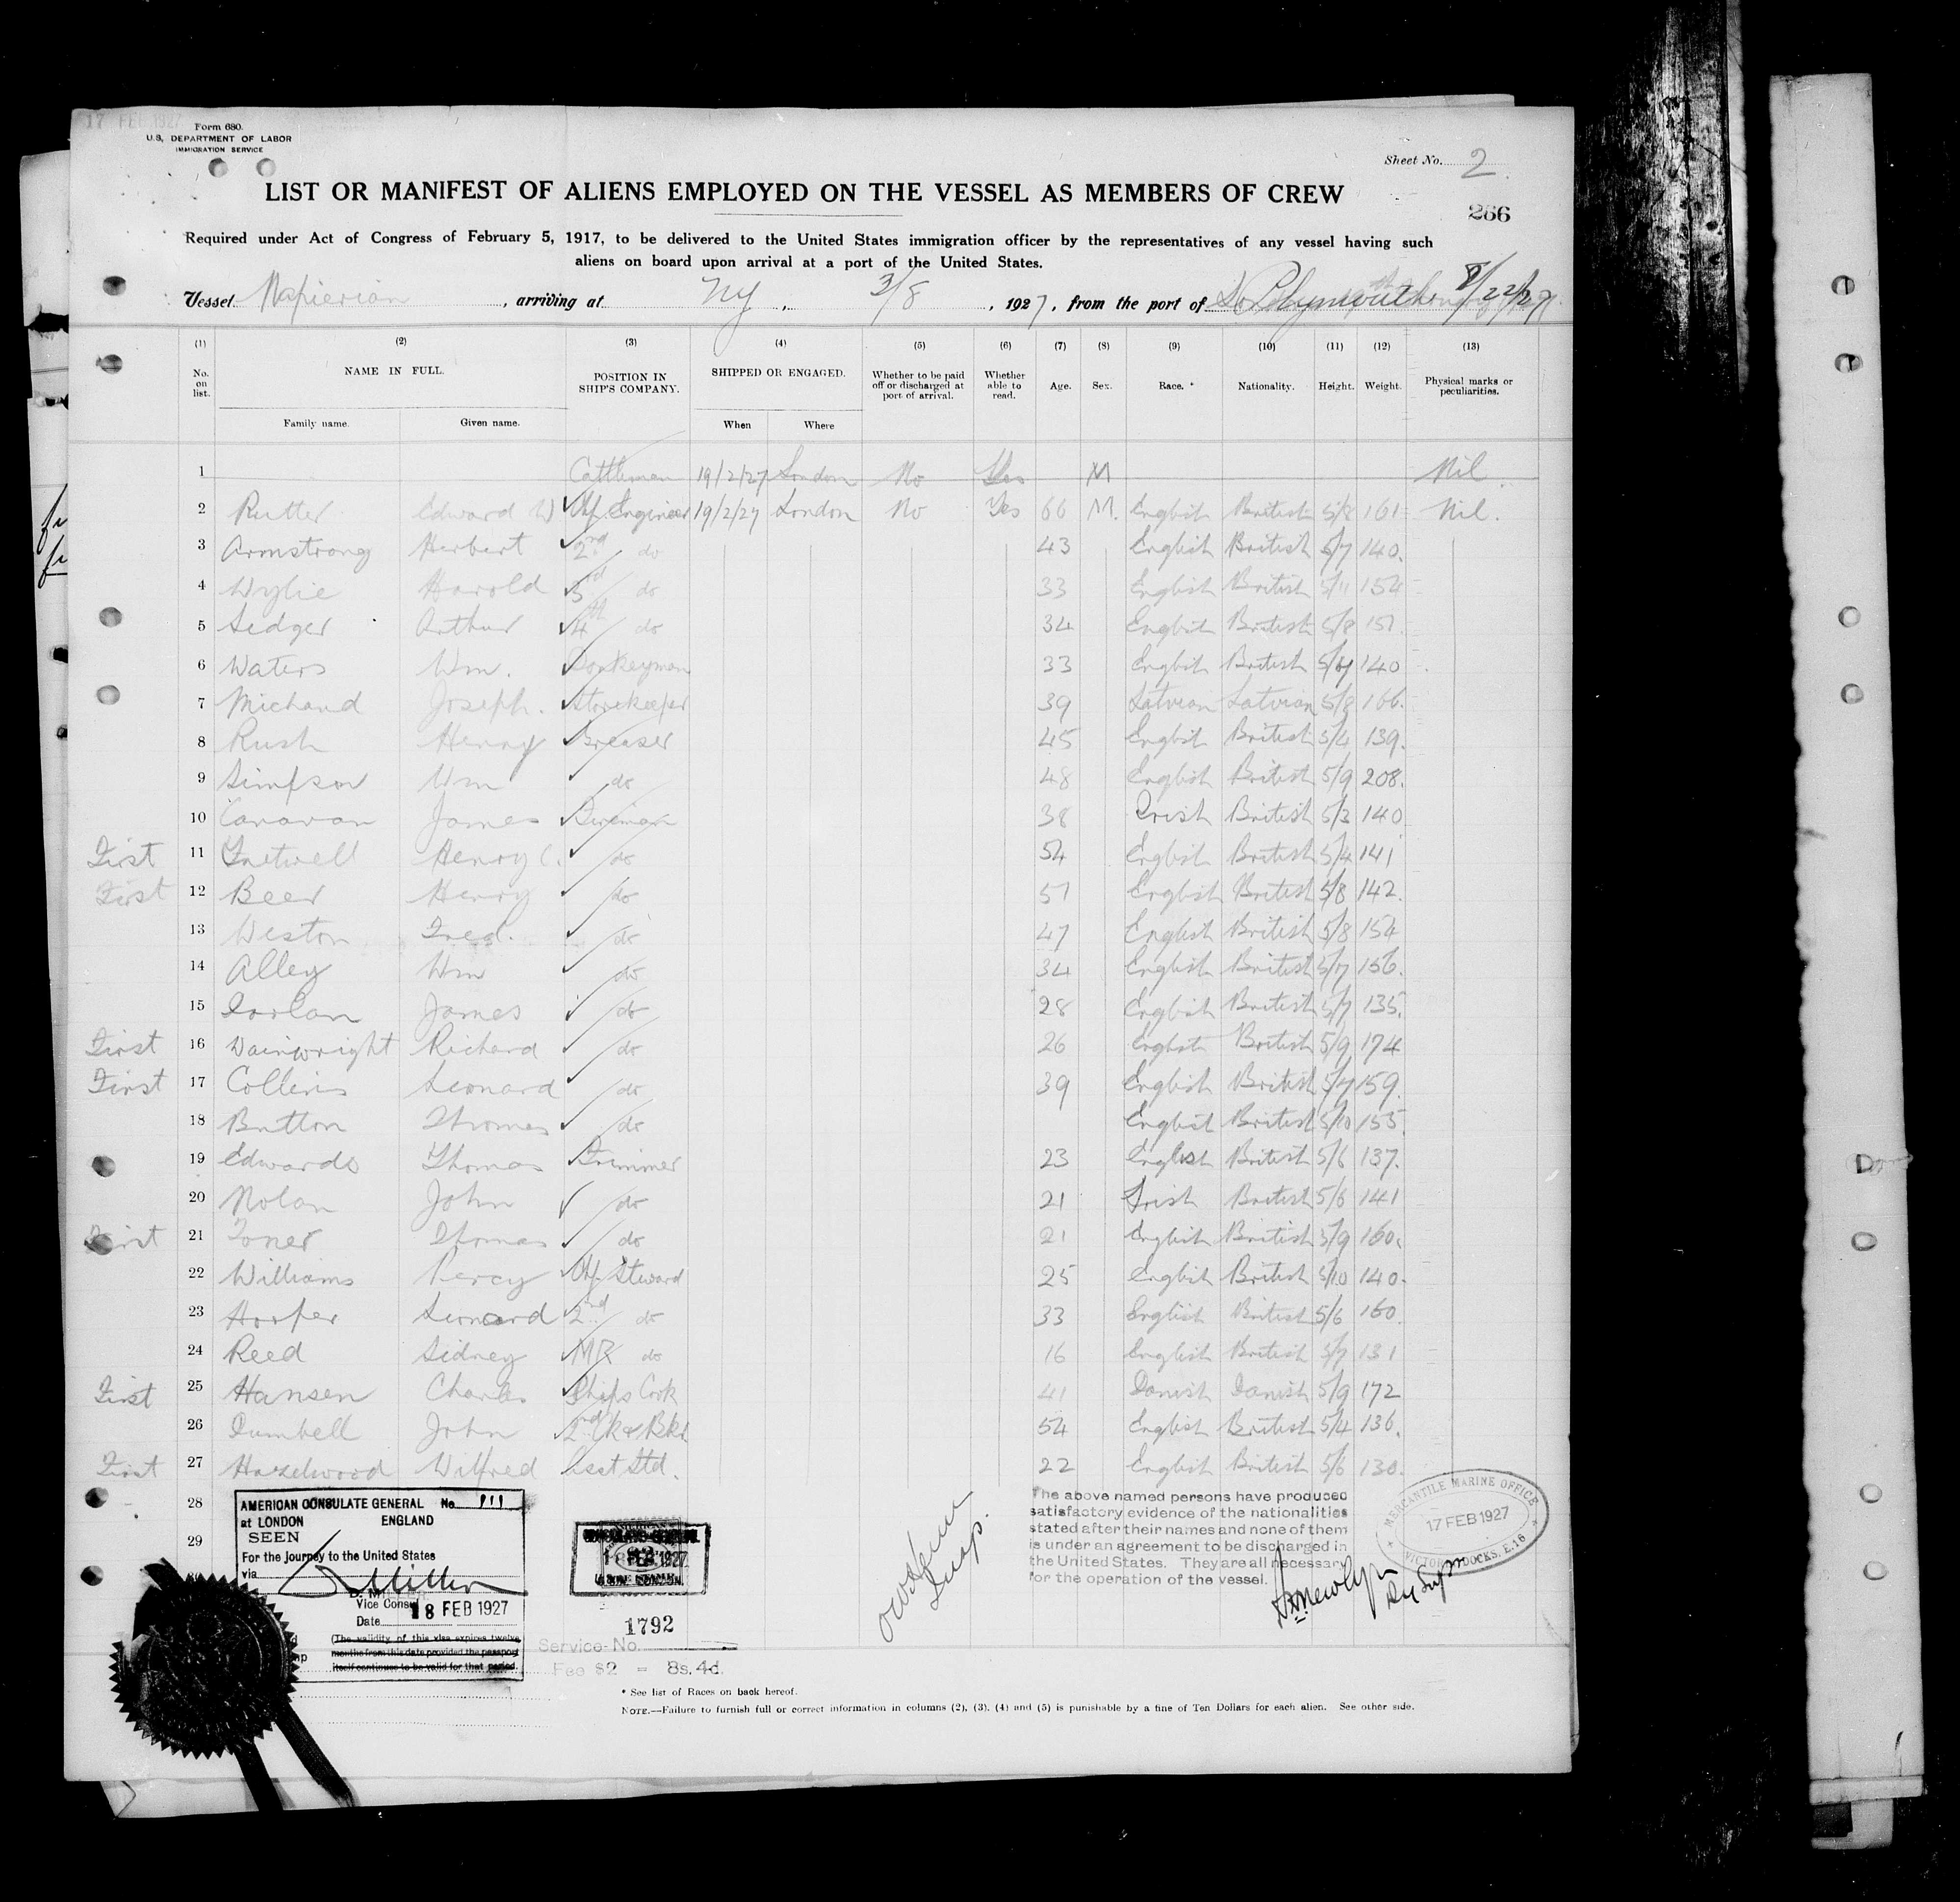 17 FEB 1927
Form 680.
U.S. DEPARTMENT OF LABOR
IMMIGRATION SERVICE
Sheet No. 2
LIST OR MANIFEST OF ALIENS EMPLOYED ON THE VESSEL AS MEMBERS OF CREW
266
Required under Act of Congress of February 5, 1917, to be delivered to the United States immigration officer by the representatives of any vessel having such
aliens on board upon arrival at a port of the United States.
Vessel Napierian, arriving at NY, 3/8, 1927, from the port of Plymouth
(1) (2) (3) (4) (5) (6) (7) (8) (9) (10) (11) (12) (13)
No. on list. NAME IN FULL. POSITION IN SHIP'S COMPANY. SHIPPED OR ENGAGED. Whether to be paid off or discharged at port of arrival. Whether able to read. Age. Sex. Race. * Nationality. Height. Weight. Physical marks or peculiarities.
Family name. Given name. When Where
1 Cattleman 19/2/27 London No Yes M Nil
2 Rutter Edward W Chf. Engineer 19/2/27 London No Yes 66 M. English British 5/8 161 Nil.
3 Armstrong Herbert 2nd do 43 English British 5/7 140.
4 Wylie Harold 3rd do 33 English British 5/11 154
5 Sedger Arthur 4th do 34 English British 5/8 151.
6 Waters Wm. Donkeyman 33 English British 140
7 Michand Joseph. Storekeeper 39 Latvian Latvian 5/8 166.
8 Rush Henry Greaser 45 English British 5/4 139.
9 Simpson Wm do 48 English British 5/9 208.
10 Canavan James Fireman 38 Irish British 5/3 140
First 11 Fretwell Henry C. do 54 English British 5/4 141
First 12 Beer Henry do 51 English British 5/8 142.
13 Weston Fred. do 47 English British 5/8 154
14 Alley Wm do 34 English British 5/7 156.
15 James do 28 English British 5/7 135.
First 16 Wainwright Richard do 26 English British 5/9 174
First 17 Collins Leonard do 39 English British 5/7 159.
18 Britton Thomas do English British 5/10 155.
19 Edwards Thomas Trimmer 23 English British 5/6 137.
20 Nolan John do 21 Irish British 5/6 141
First 21 Toner Thomas do 21 English British 5/9 160.
22 Williams Percy Chf. Steward 25 English British 5/10 140.
23 Hooper Leonard 2nd do 33 English British 5/6 160.
24 Reed Sidney MR do 16 English British 5/7 131
First 25 Hansen Charles Ships Cook 41 Danish Danish 5/9 172
26 Dumbell John 2nd Ck & Bkr 54 English British 5/4 136.
First 27 Hazelwood Wilfred Asst Std. 22 English British 5/6 130.
28
29
30
AMERICAN CONSULATE GENERAL No. 111
at LONDON ENGLAND
SEEN
For the journey to the United States
via
Vice Consul
Date 18 FEB 1927
(The validity of this visa expires twelve
months from this date provided the passport
itself continues to be valid for that period.
18 FEB 1927
1792
Service No.
Fee $2 = 8s. 4d.
The above named persons have produced
satisfactory evidence of the nationalities
stated after their names and none of them
is under an agreement to be discharged in
the United States. They are all necessary
for the operation of the vessel.
MERCANTILE MARINE OFFICE
17 FEB 1927
VICTORIA DOCKS, E.16
* See list of Races on back hereof.
NOTE.—Failure to furnish full or correct information in columns (2), (3), (4) and (5) is punishable by a fine of Ten Dollars for each alien. See other side.